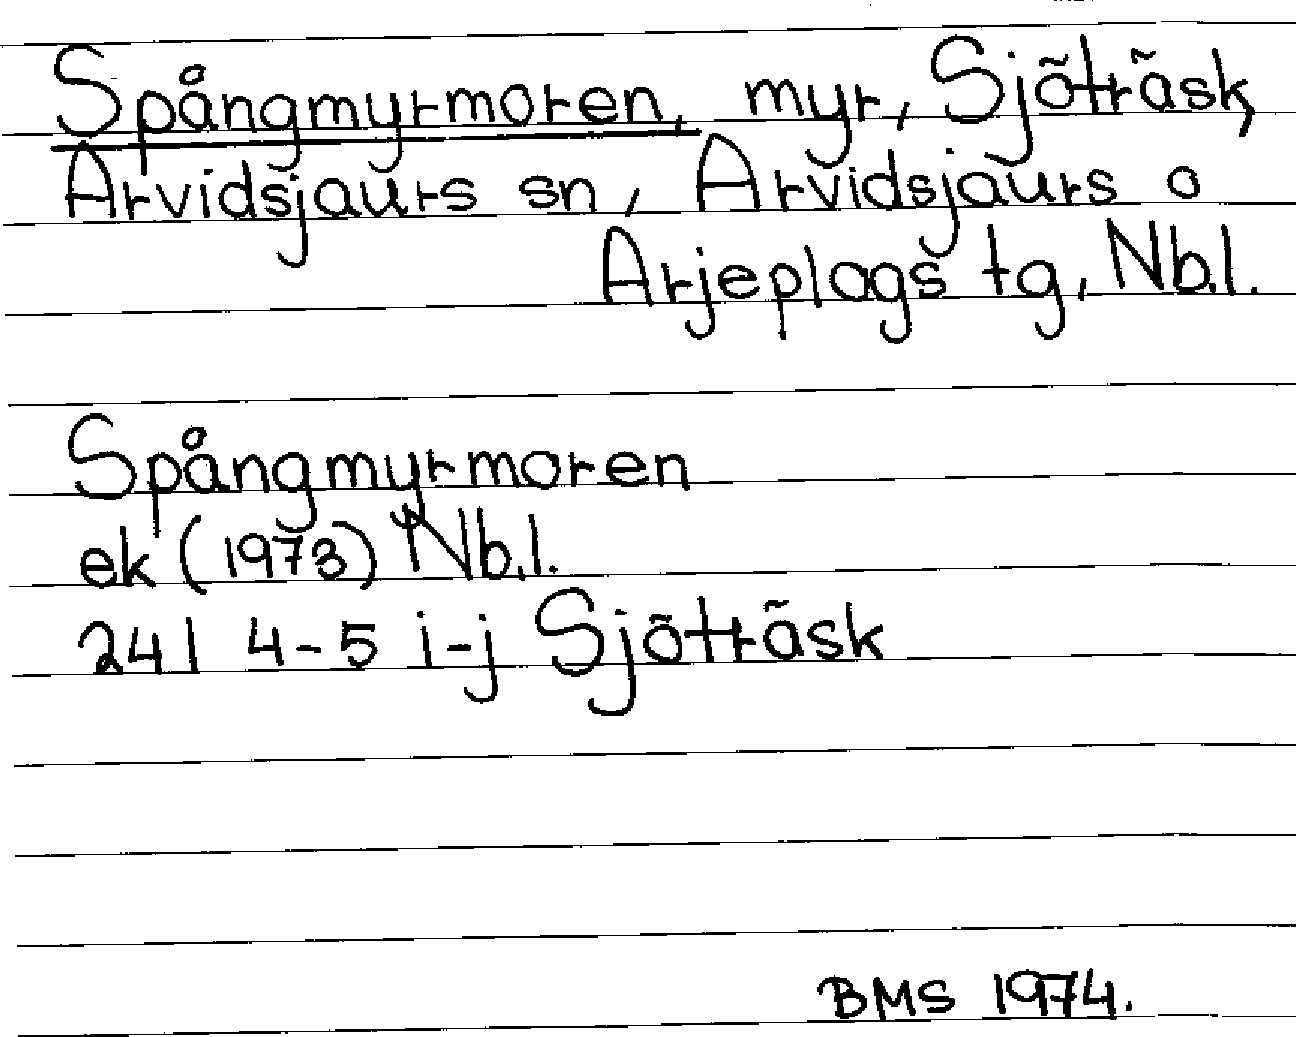 Spångmyrmoren, myr, Sjöträsk,
Arvidsjaurs sn, Arvidsjaurs o
Arjeplogs tg, Nb.l.
Spångmyrmoren
ek (1973) Nb.l.
24I 4-5 i-j Sjöträsk
BMS 1974.